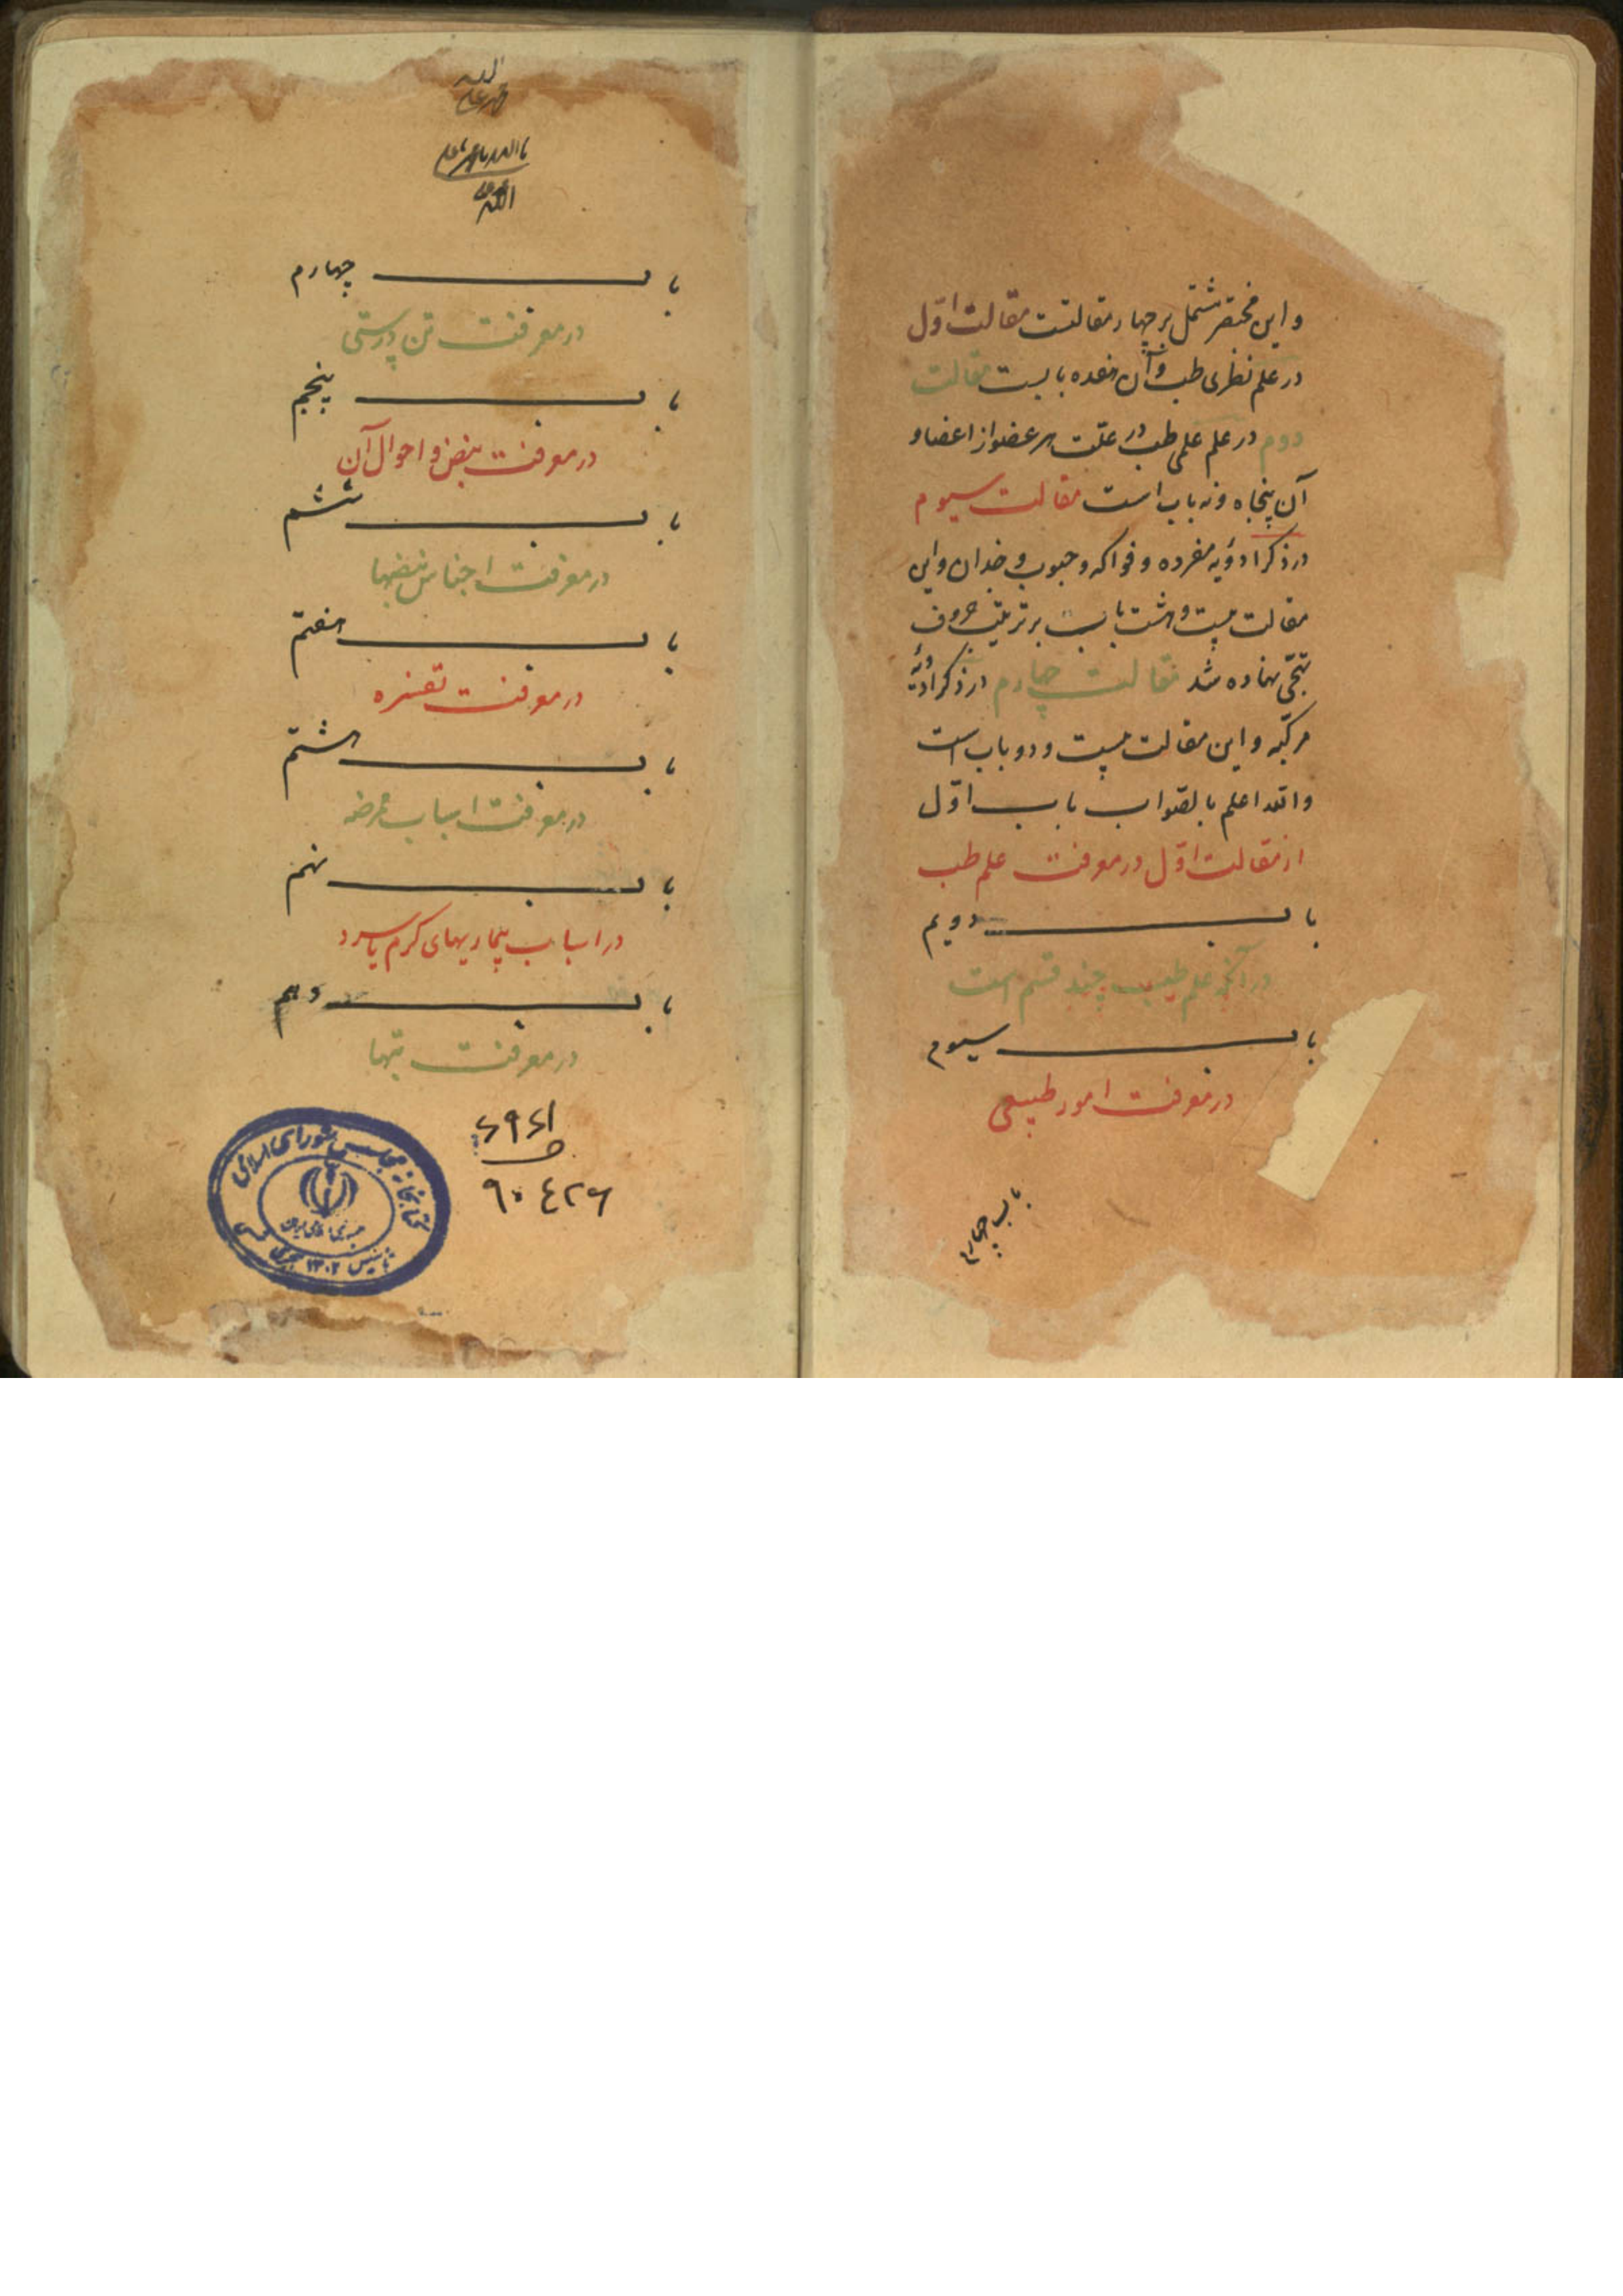 و این مختصر مشتمل بر چهار مقالتست مقالت اوّل
در علم نظری طب و آن هفده بابست مقالت
دوم در علم عملی طب در علّت هر عضو از اعضا و
آن پنجاه و نه باب است مقالت سیوم
در ذکر ادویه مفرده و فواکه و حبوب و این
مقالت بیست و هشت بابست بر ترتیب حروف
تهجّی نهاده شد مقالت چهارم در ذکر ادویهٔ
مرکّبه و این مقالت بیست و دو باب است
والله اعلم بالصّواب باب اوّل
از مقالت اوّل در معرفت علم طب
باب دویم
در آنکه علم طب چند قسم است
باب سیوم
در معرفت امور طبیعی
باب چهارم
الله
باب چهارم
در معرفت تن درستی
باب پنجم
در معرفت نبض و احوال آن
باب ششم
در معرفت اجناس نبضها
باب هفتم
در معرفت تفسره
باب هشتم
در معرفت اسباب ممرضه
باب نهم
در اسباب بیماریهای کرم یا سرد
باب دهم
در معرفت تبها
۹۰۴۲۶
کتابخانه مجلس شورای اسلامی
تأسیس ۱۳۰۲